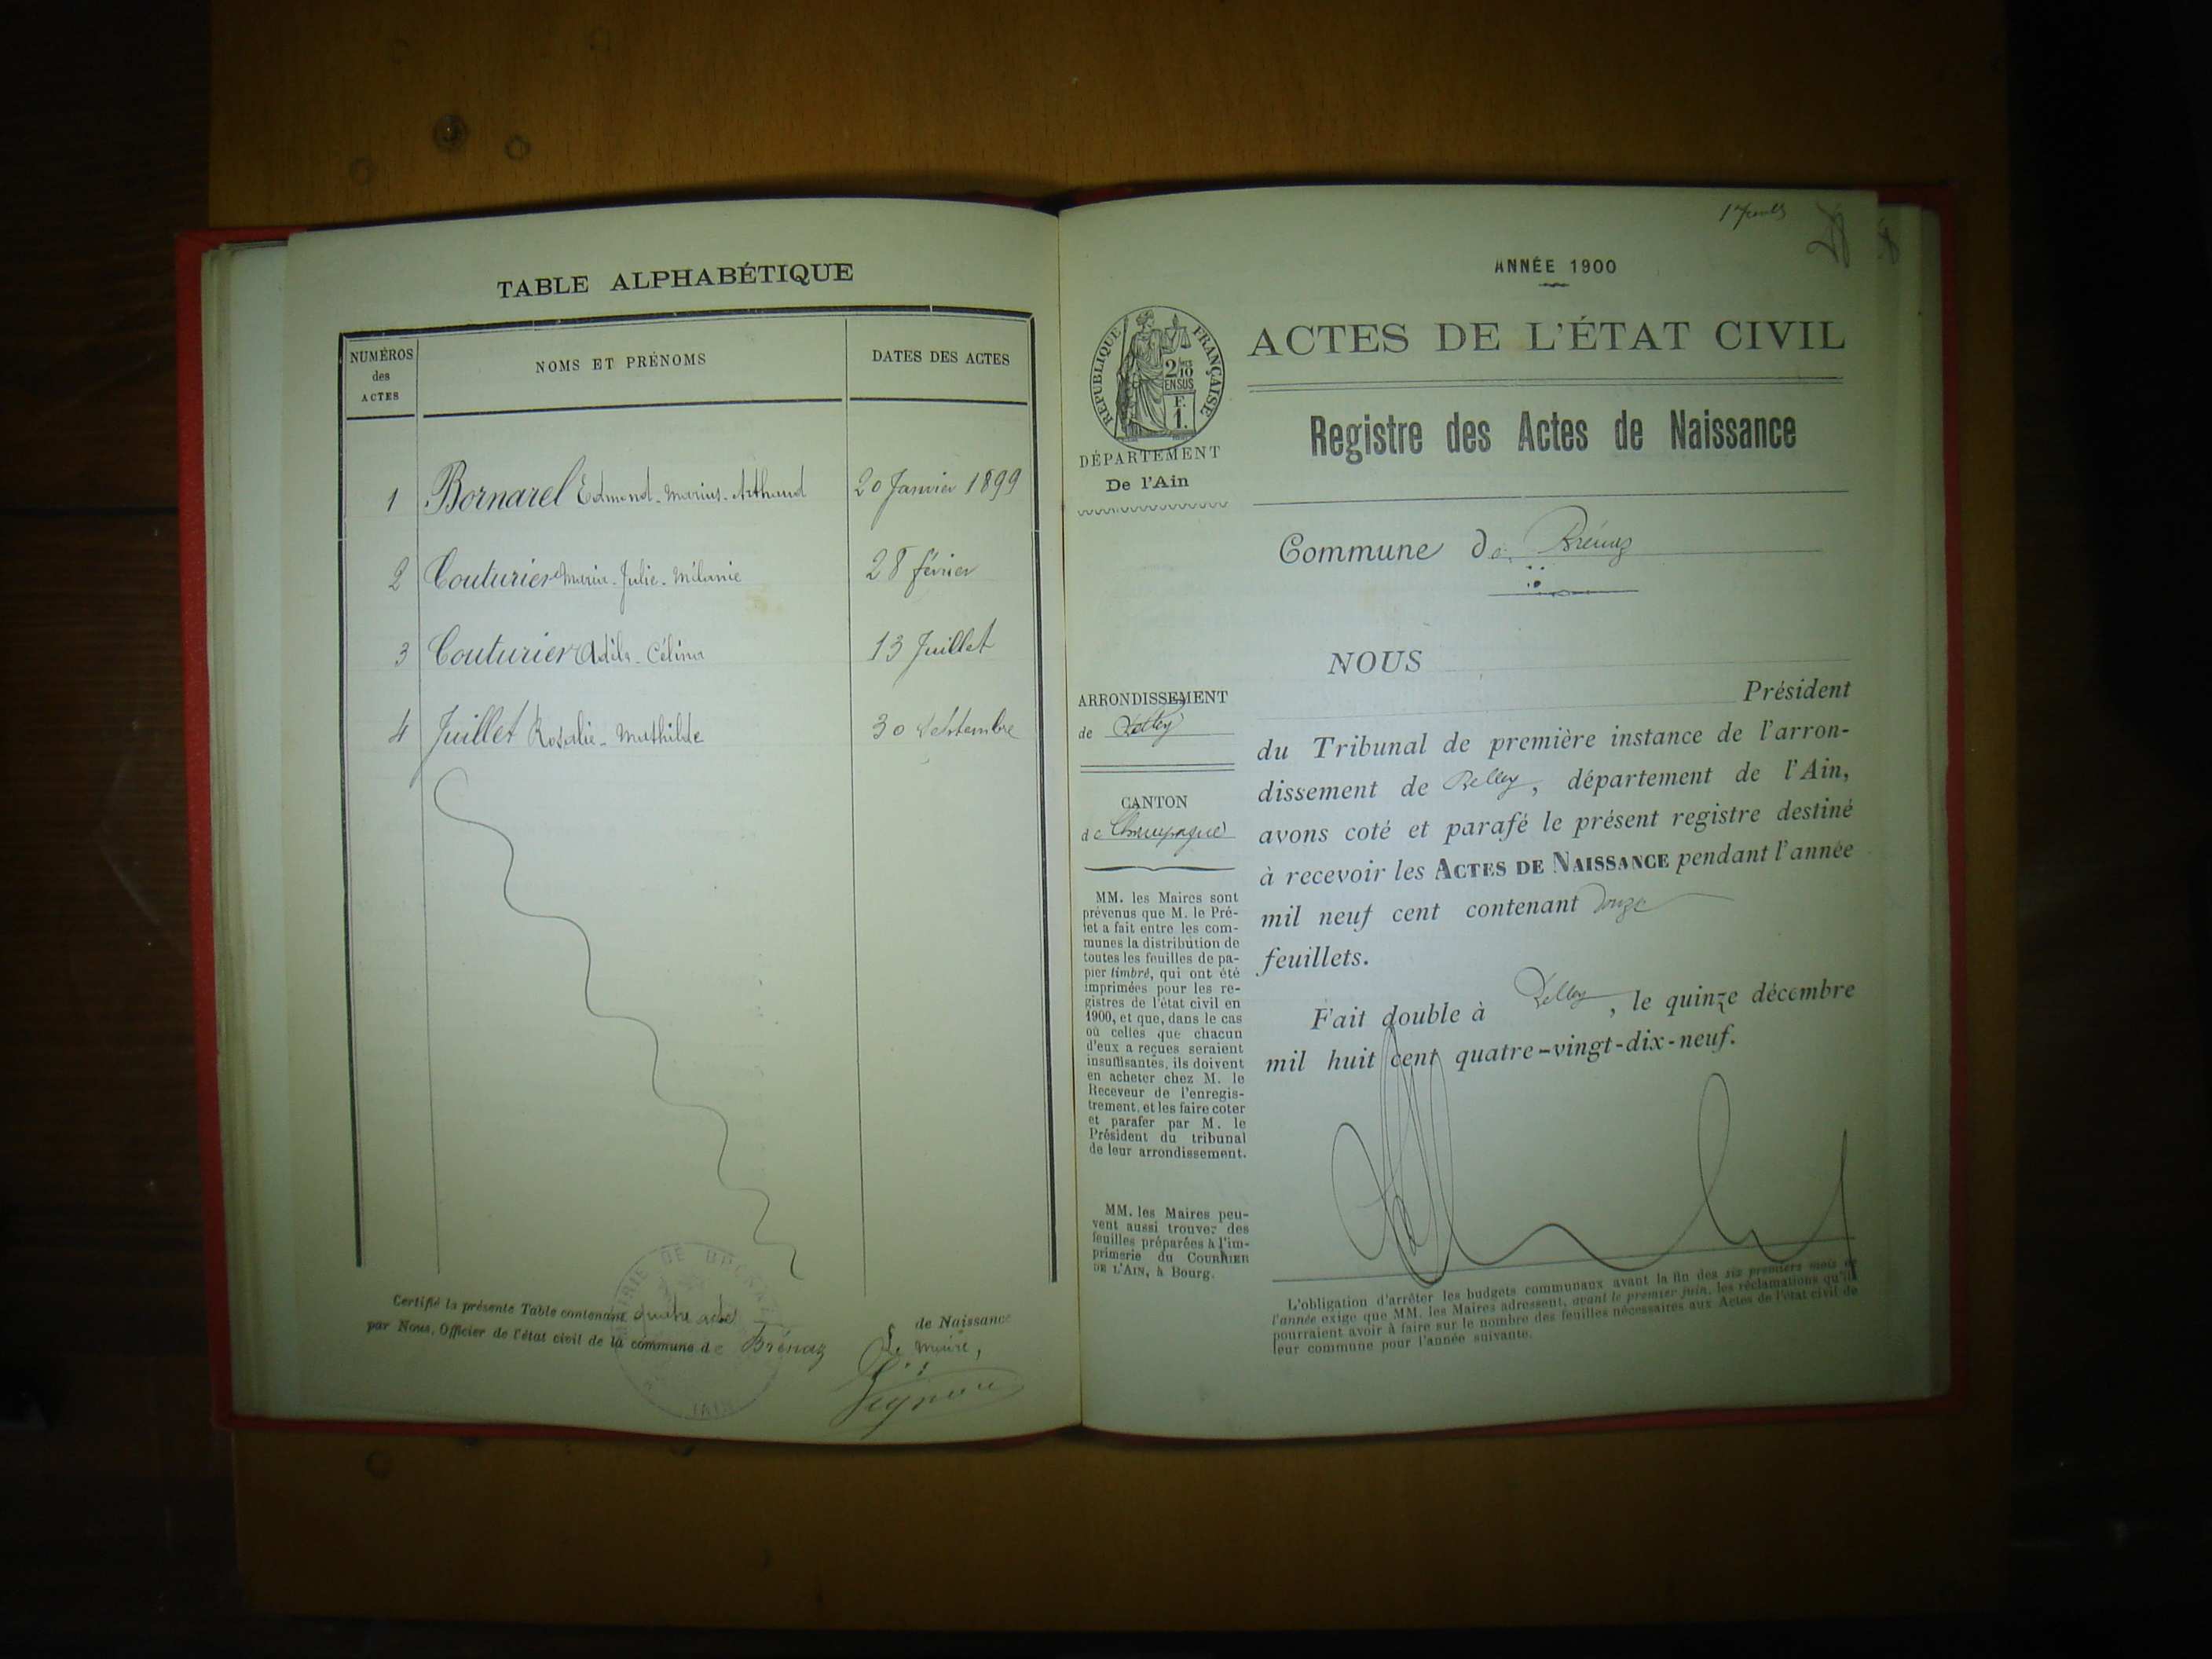 TABLE ALPHABÉTIQUE
NUMÉROS
des
ACTES
NOMS ET PRÉNOMS
DATES DES ACTES
1 Bornarel Edmond-Marius-Arthaud 20 Janvier 1899
2 Couturier Marie-Julie-Mélanie 28 février
3 Couturier Adèle-Célina 13 Juillet
4 Juillet Rosalie-Mathilde 30 Septembre
Certifié la présente Table contenant quatre actes de Naissance
par Nous, Officier de l'état civil de la commune de Brénaz
Le Maire,
MAIRIE DE BRENAZ
(AIN)
ANNÉE 1900
RÉPUBLIQUE FRANÇAISE
2/10
EN SUS
F.
1.
DÉPARTEMENT
De l'Ain
ACTES DE L'ÉTAT CIVIL
Registre des Actes de Naissance
Commune de Brénaz
ARRONDISSEMENT
de Belley
CANTON
de Champagne
MM. les Maires sont
prévenus que M. le Pré-
fet a fait entre les com-
munes la distribution de
toutes les feuilles de pa-
pier timbré, qui ont été
imprimées pour les re-
gistres de l'état civil en
1900, et que, dans le cas
où celles que chacun
d'eux a reçues seraient
insuffisantes, ils doivent
en acheter chez M. le
Receveur de l'enregis-
trement, et les faire coter
et parafer par M. le
Président du tribunal
de leur arrondissement.
MM. les Maires peu-
vent aussi trouver des
feuilles préparées à l'im-
primerie du COURRIER
DE L'AIN, à Bourg.
NOUS
Président
du Tribunal de première instance de l'arron-
dissement de Belley, département de l'Ain,
avons coté et parafé le présent registre destiné
à recevoir les ACTES DE NAISSANCE pendant l'année
mil neuf cent contenant douze
feuillets.
Fait double à Belley, le quinze décembre
mil huit cent quatre-vingt-dix-neuf.
L'obligation d'arrêter les budgets communaux avant la fin des six premiers mois de
l'année exige que MM. les Maires adressent, avant le premier juin, les réclamations qu'ils
pourraient avoir à faire sur le nombre des feuilles nécessaires aux Actes de l'état civil de
leur commune pour l'année suivante.